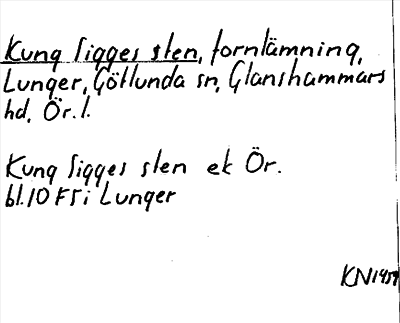 Kung Sigges sten, fornlämning,
Lunger, Götlunda sn, Glanshammars
hd, Ör. l.
Kung Sigges sten ek Ör.
bl. 10 FS i Lunger
KN 1959